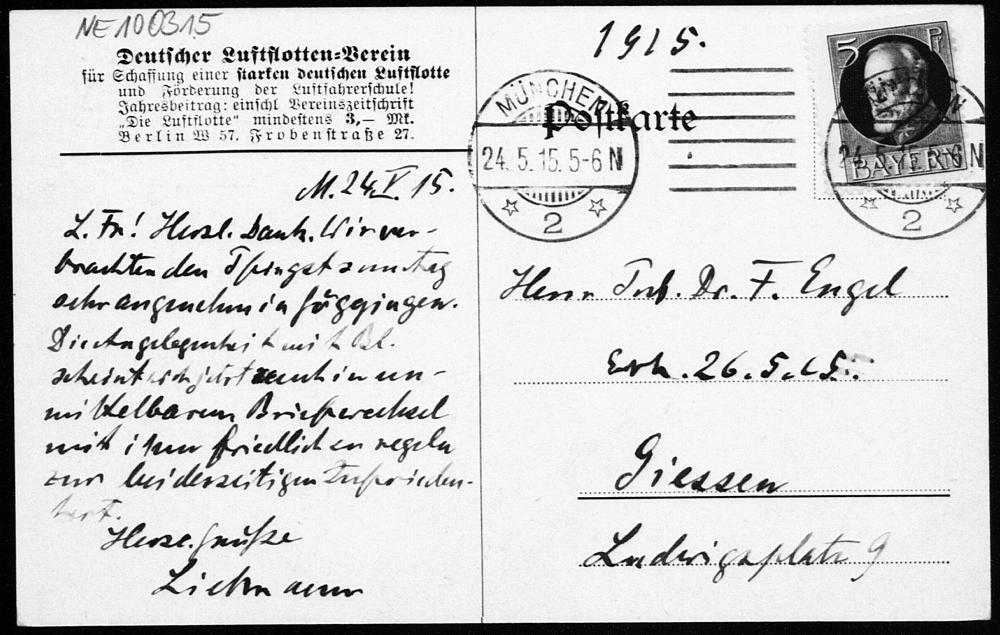 NE100315
Deutscher Luftflotten-Verein
für Schaffung einer starken deutschen Luftflotte
und Förderung der Luftfahrerschule!
Jahresbeitrag: einschl Vereinszeitschrift
„Die Luftflotte“ mindestens 3,— Mk.
Berlin W 57, Frobenstraße 27.
M. 24. V. 15.
L. Fr! Herzl. Dank. Wir ver-
brachten den Pfingstsonntag
sehr angenehm in Göggingen.
Die Angelegenheit mit Bl.
scheint sich jetzt auch in un-
mittelbarem Briefwechsel
mit ihm friedlichen regeln
zur beiderseitigen Zufrieden-
heit.
Herzl. Grüße
Liebmann
1915.
Postkarte
MÜNCHEN
24.5.15.5-6 N
2
5 Pf
BAYERN
MÜNCHEN
24.5.15.5-6 N
2
Herrn Prof. Dr. F. Engel
Erh. 26.5.15.
Giessen
Ludwigsplatz 9